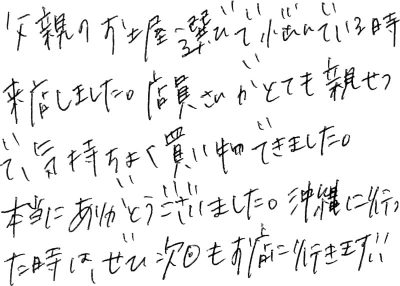 父親のお土産選びで悩んでいる時
来店しました。店員さんがとても親せつ
で、気持ちよく買い物できました。
本当にありがとうございました。沖縄に行っ
た時は、ぜひ次回もお店に行きます!!